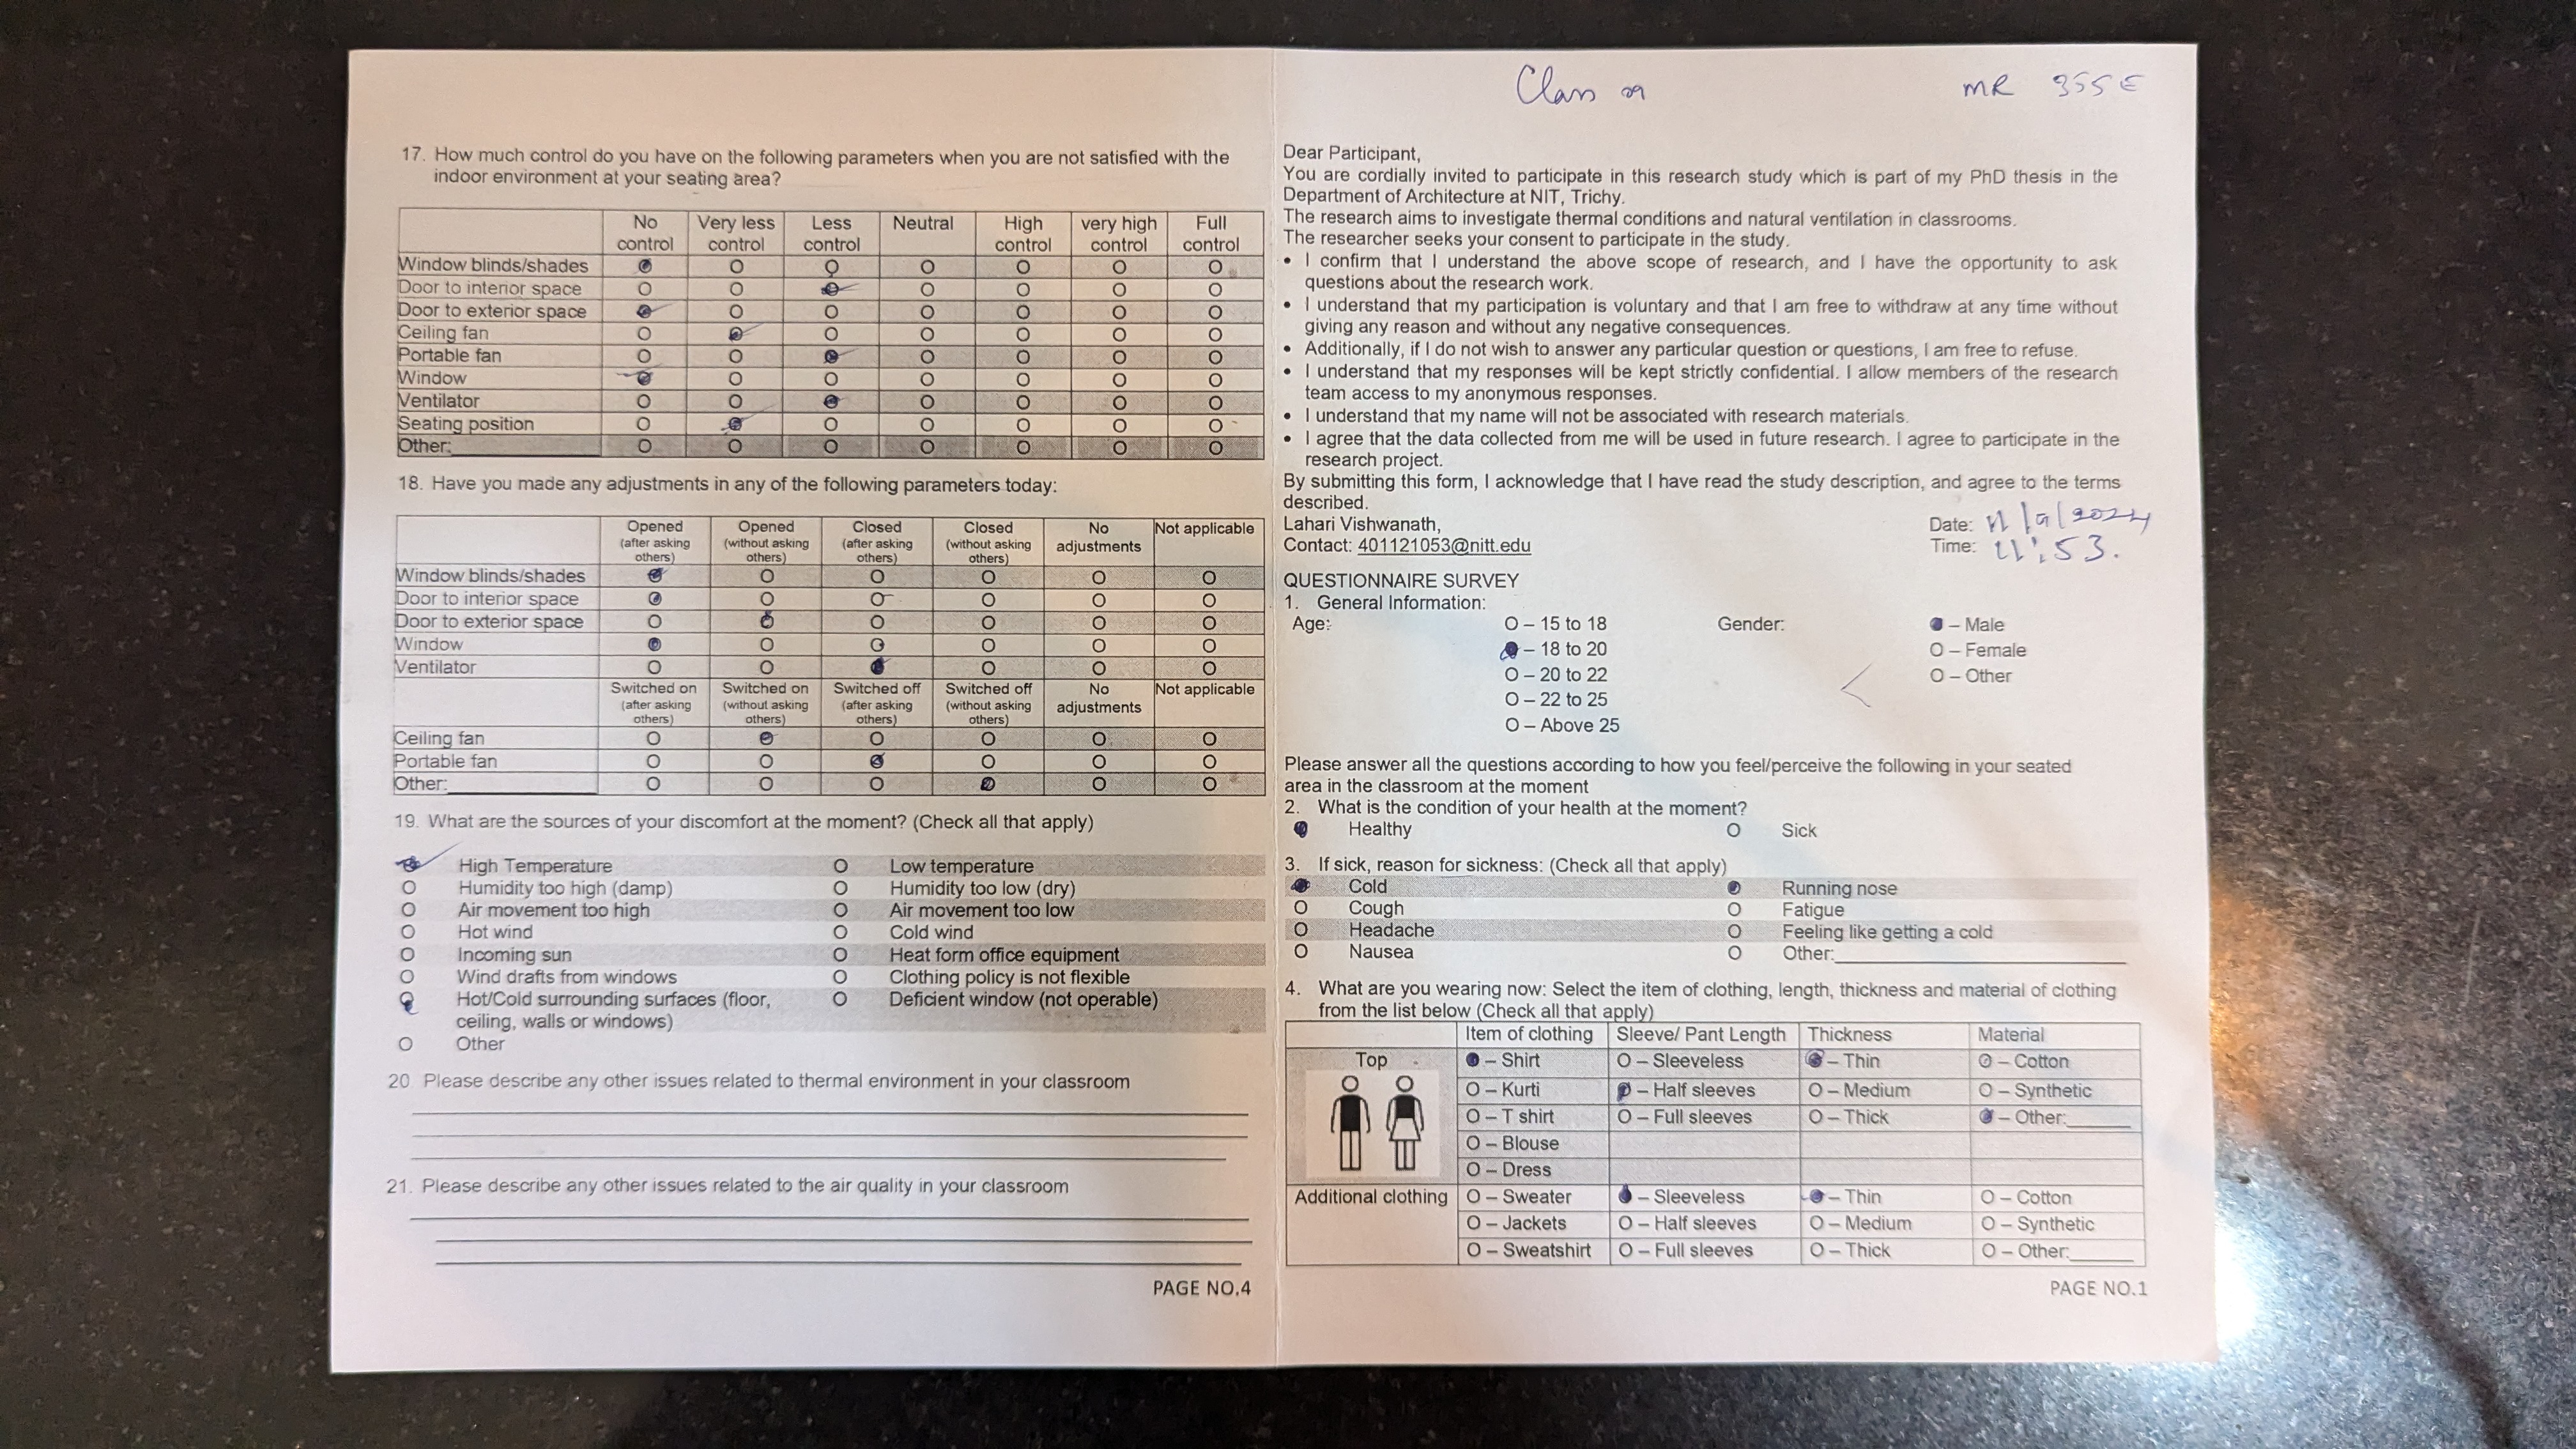 17. How much control do you have on the following parameters when you are not satisfied with the
indoor environment at your seating area?
No control Very less control Less control Neutral High control very high control Full control
Window blinds/shades O O O O O O
Door to interior space O O O O O O
Door to exterior space O O O O O O
Ceiling fan O O O O O O
Portable fan O O O O O O
Window O O O O O O
Ventilator O O O O O O
Seating position O O O O O O
Other: O O O O O O O
18. Have you made any adjustments in any of the following parameters today:
Opened (after asking others) Opened (without asking others) Closed (after asking others) Closed (without asking others) No adjustments Not applicable
Window blinds/shades O O O O O
Door to interior space O O O O O
Door to exterior space O O O O O
Window O O O O O
Ventilator O O O O O
Switched on (after asking others) Switched on (without asking others) Switched off (after asking others) Switched off (without asking others) No adjustments Not applicable
Ceiling fan O O O O O
Portable fan O O O O O
Other: O O O O O
19. What are the sources of your discomfort at the moment? (Check all that apply)
High Temperature O Low temperature
O Humidity too high (damp) O Humidity too low (dry)
O Air movement too high O Air movement too low
O Hot wind O Cold wind
O Incoming sun O Heat form office equipment
O Wind drafts from windows O Clothing policy is not flexible
O Hot/Cold surrounding surfaces (floor, O Deficient window (not operable)
ceiling, walls or windows)
O Other
20. Please describe any other issues related to thermal environment in your classroom
21. Please describe any other issues related to the air quality in your classroom
PAGE NO.4
Class MR 355E
Dear Participant,
You are cordially invited to participate in this research study which is part of my PhD thesis in the
Department of Architecture at NIT, Trichy.
The research aims to investigate thermal conditions and natural ventilation in classrooms.
The researcher seeks your consent to participate in the study.
• I confirm that I understand the above scope of research, and I have the opportunity to ask
questions about the research work.
• I understand that my participation is voluntary and that I am free to withdraw at any time without
giving any reason and without any negative consequences.
• Additionally, if I do not wish to answer any particular question or questions, I am free to refuse.
• I understand that my responses will be kept strictly confidential. I allow members of the research
team access to my anonymous responses.
• I understand that my name will not be associated with research materials.
• I agree that the data collected from me will be used in future research. I agree to participate in the
research project.
By submitting this form, I acknowledge that I have read the study description, and agree to the terms
described.
Lahari Vishwanath, Date: 11/9/2024
Contact: 401121053@nitt.edu Time: 11:53.
QUESTIONNAIRE SURVEY
1. General Information:
Age: O – 15 to 18 Gender: – Male
– 18 to 20 O – Female
O – 20 to 22 O – Other
O – 22 to 25
O – Above 25
Please answer all the questions according to how you feel/perceive the following in your seated
area in the classroom at the moment
2. What is the condition of your health at the moment?
Healthy O Sick
3. If sick, reason for sickness: (Check all that apply)
Cold Running nose
O Cough O Fatigue
O Headache O Feeling like getting a cold
O Nausea O Other:
4. What are you wearing now: Select the item of clothing, length, thickness and material of clothing
from the list below (Check all that apply)
Item of clothing Sleeve/ Pant Length Thickness Material
Top – Shirt O – Sleeveless – Thin O – Cotton
O – Kurti – Half sleeves O – Medium O – Synthetic
O – T shirt O – Full sleeves O – Thick – Other:
O – Blouse
O – Dress
Additional clothing O – Sweater – Sleeveless – Thin O – Cotton
O – Jackets O – Half sleeves O – Medium O – Synthetic
O – Sweatshirt O – Full sleeves O – Thick O – Other:
PAGE NO.1